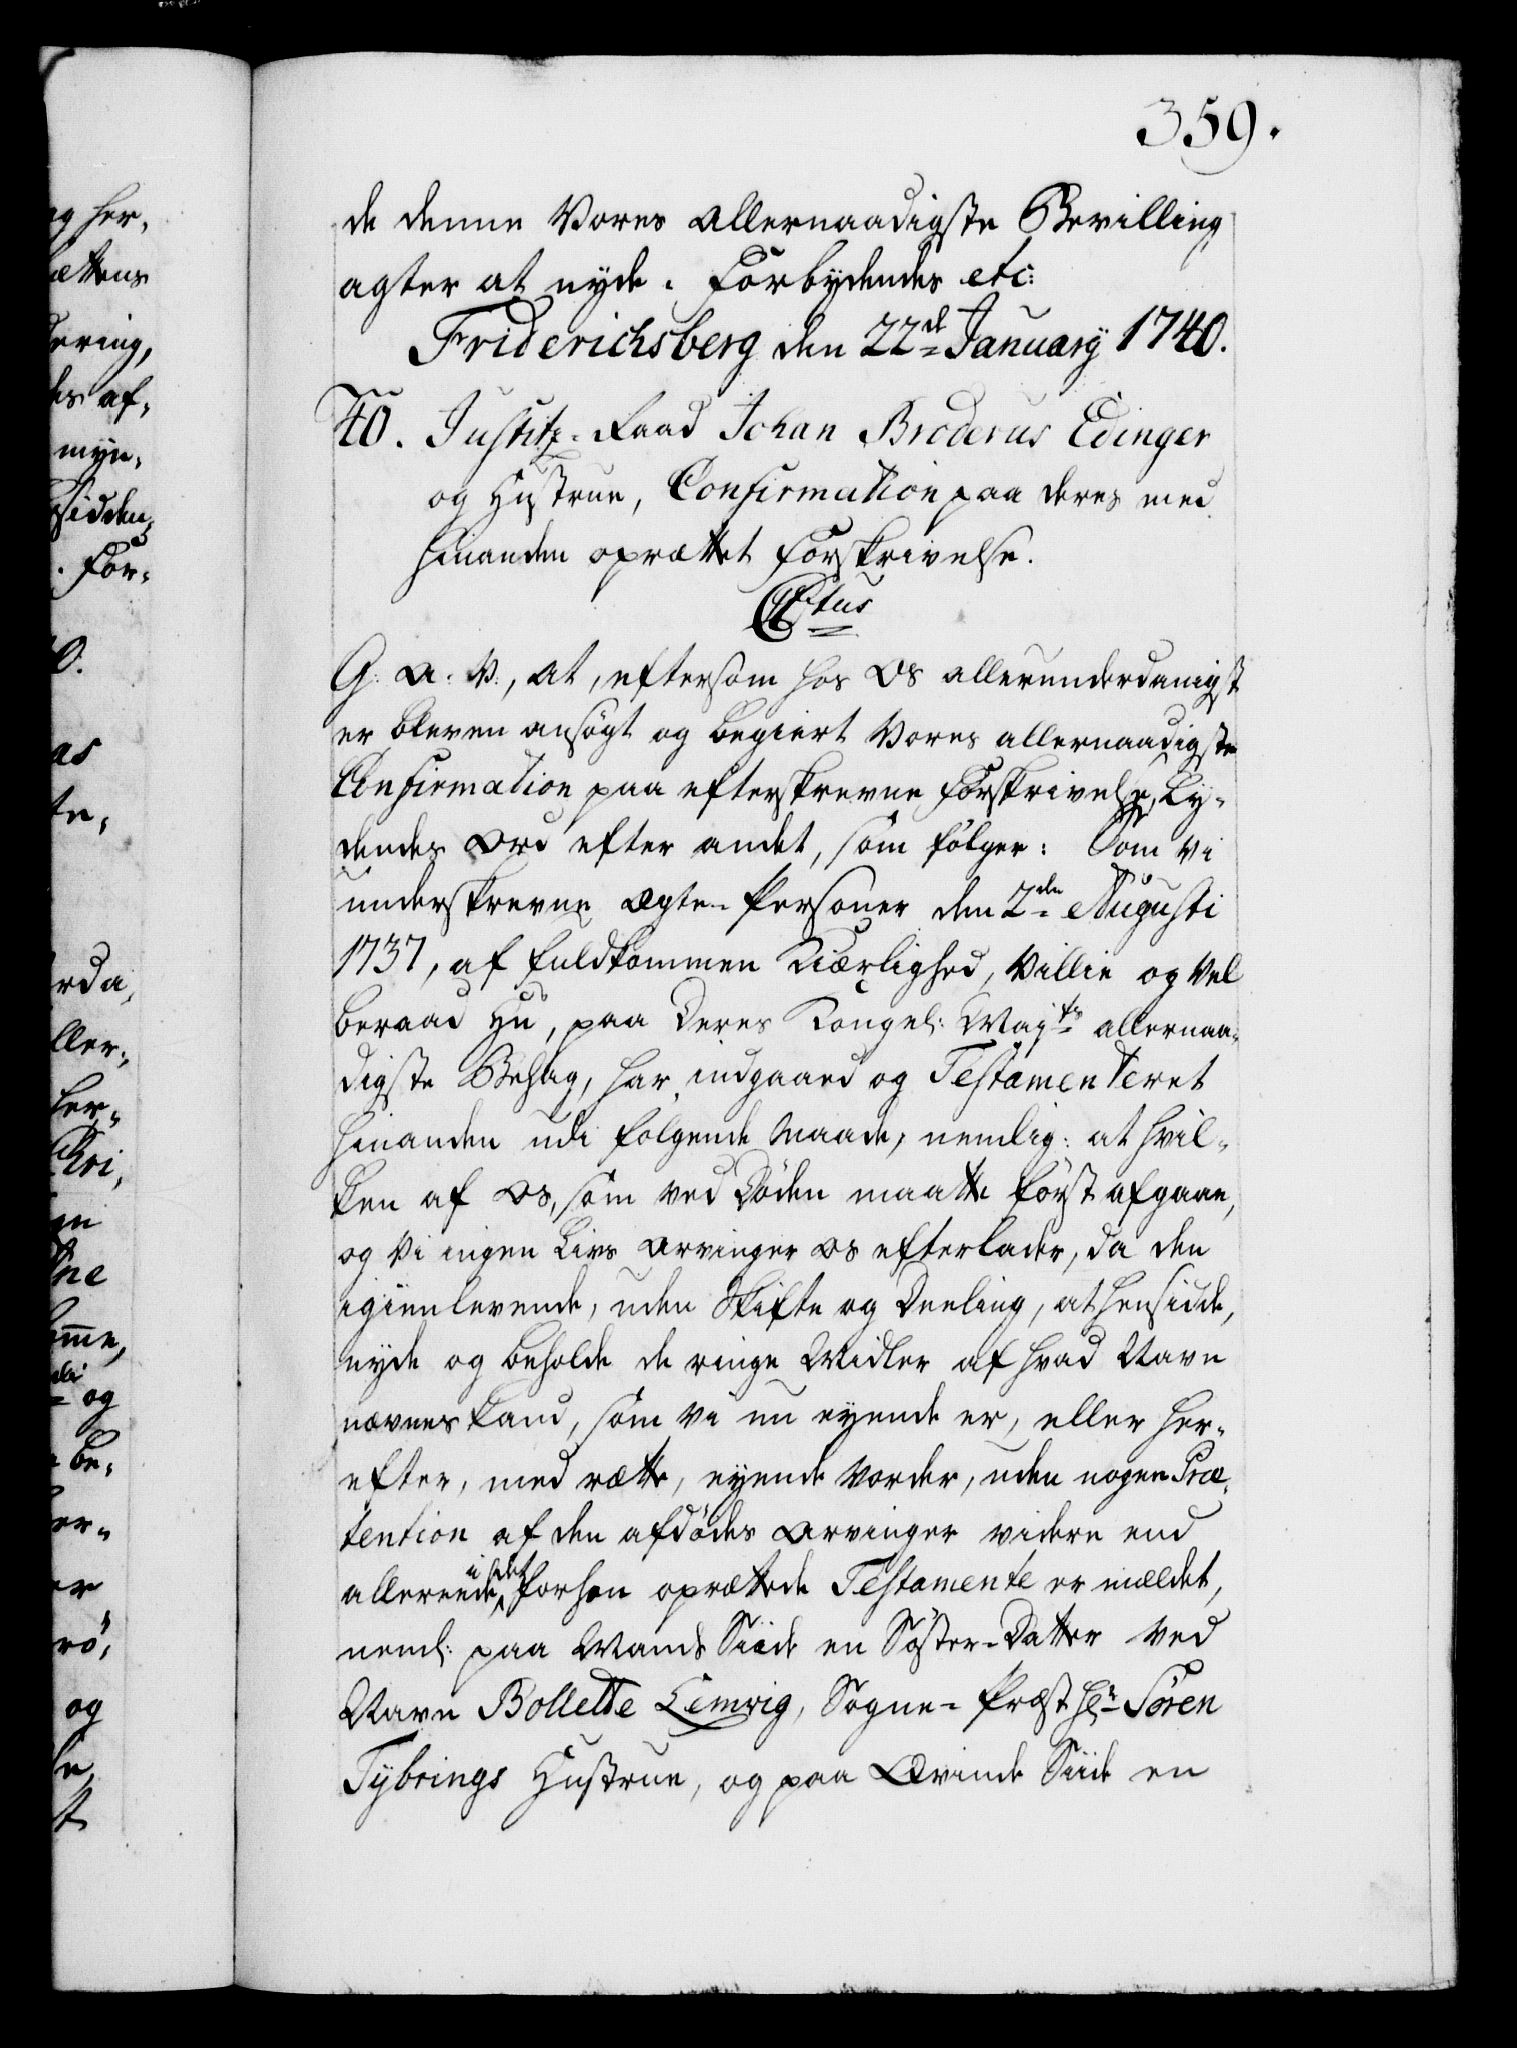 359.
de denne Vores Allernaadigste Bevilling
agter at nyde. Forbydendes etc:
Friderichsberg den 22de January 1740.
40. Justitz-Raad Johan Broderus Edinger
og Hustrue, Confirmation paa deres med
hinanden oprættet Forskrivelse.
CVIItus
G. A. V., at, eftersom hos Os allerunderdanigst
er bleven ansøgt og begiert Vores allernaadigste
Confirmation paa efterskrevne Forskrivelse, Ly-
dendes Ord efter andet, som følger: Som vi
underskrevne Ægte-Personer den 2den Augusti
1737, af fuldkommen Kiærlighed, Villie og Vel
beraad Hu, paa Deres Kongel: Majts allernaa-
digste Behag, har indgaaed og Testamenteret
hinanden udi folgende Maade, nemlig: at hvil-
ken af Os, som ved Døden maatte først afgaae,
og Vi ingen Livs Arvinger Os efterlader, da den
igienlevende, uden Skifte og Deeling, at hensidde,
nyde og beholde de ringe Midler af hvad Navn
nævnes kand, som vi nu eyende er, eller her-
efter, med rætte, eyende vorder, uden nogen Præ-
tention af den afdødes Arvinger videre end
allereede i det forhen oprættede Testamente er mældet,
neml: paa Mands Siide en Søster-Datter ved
Navn Bollette Lemvig, Sogne-Præst Hr. Sören
Tybrings Hustrue, og paa Qvinde Siide en